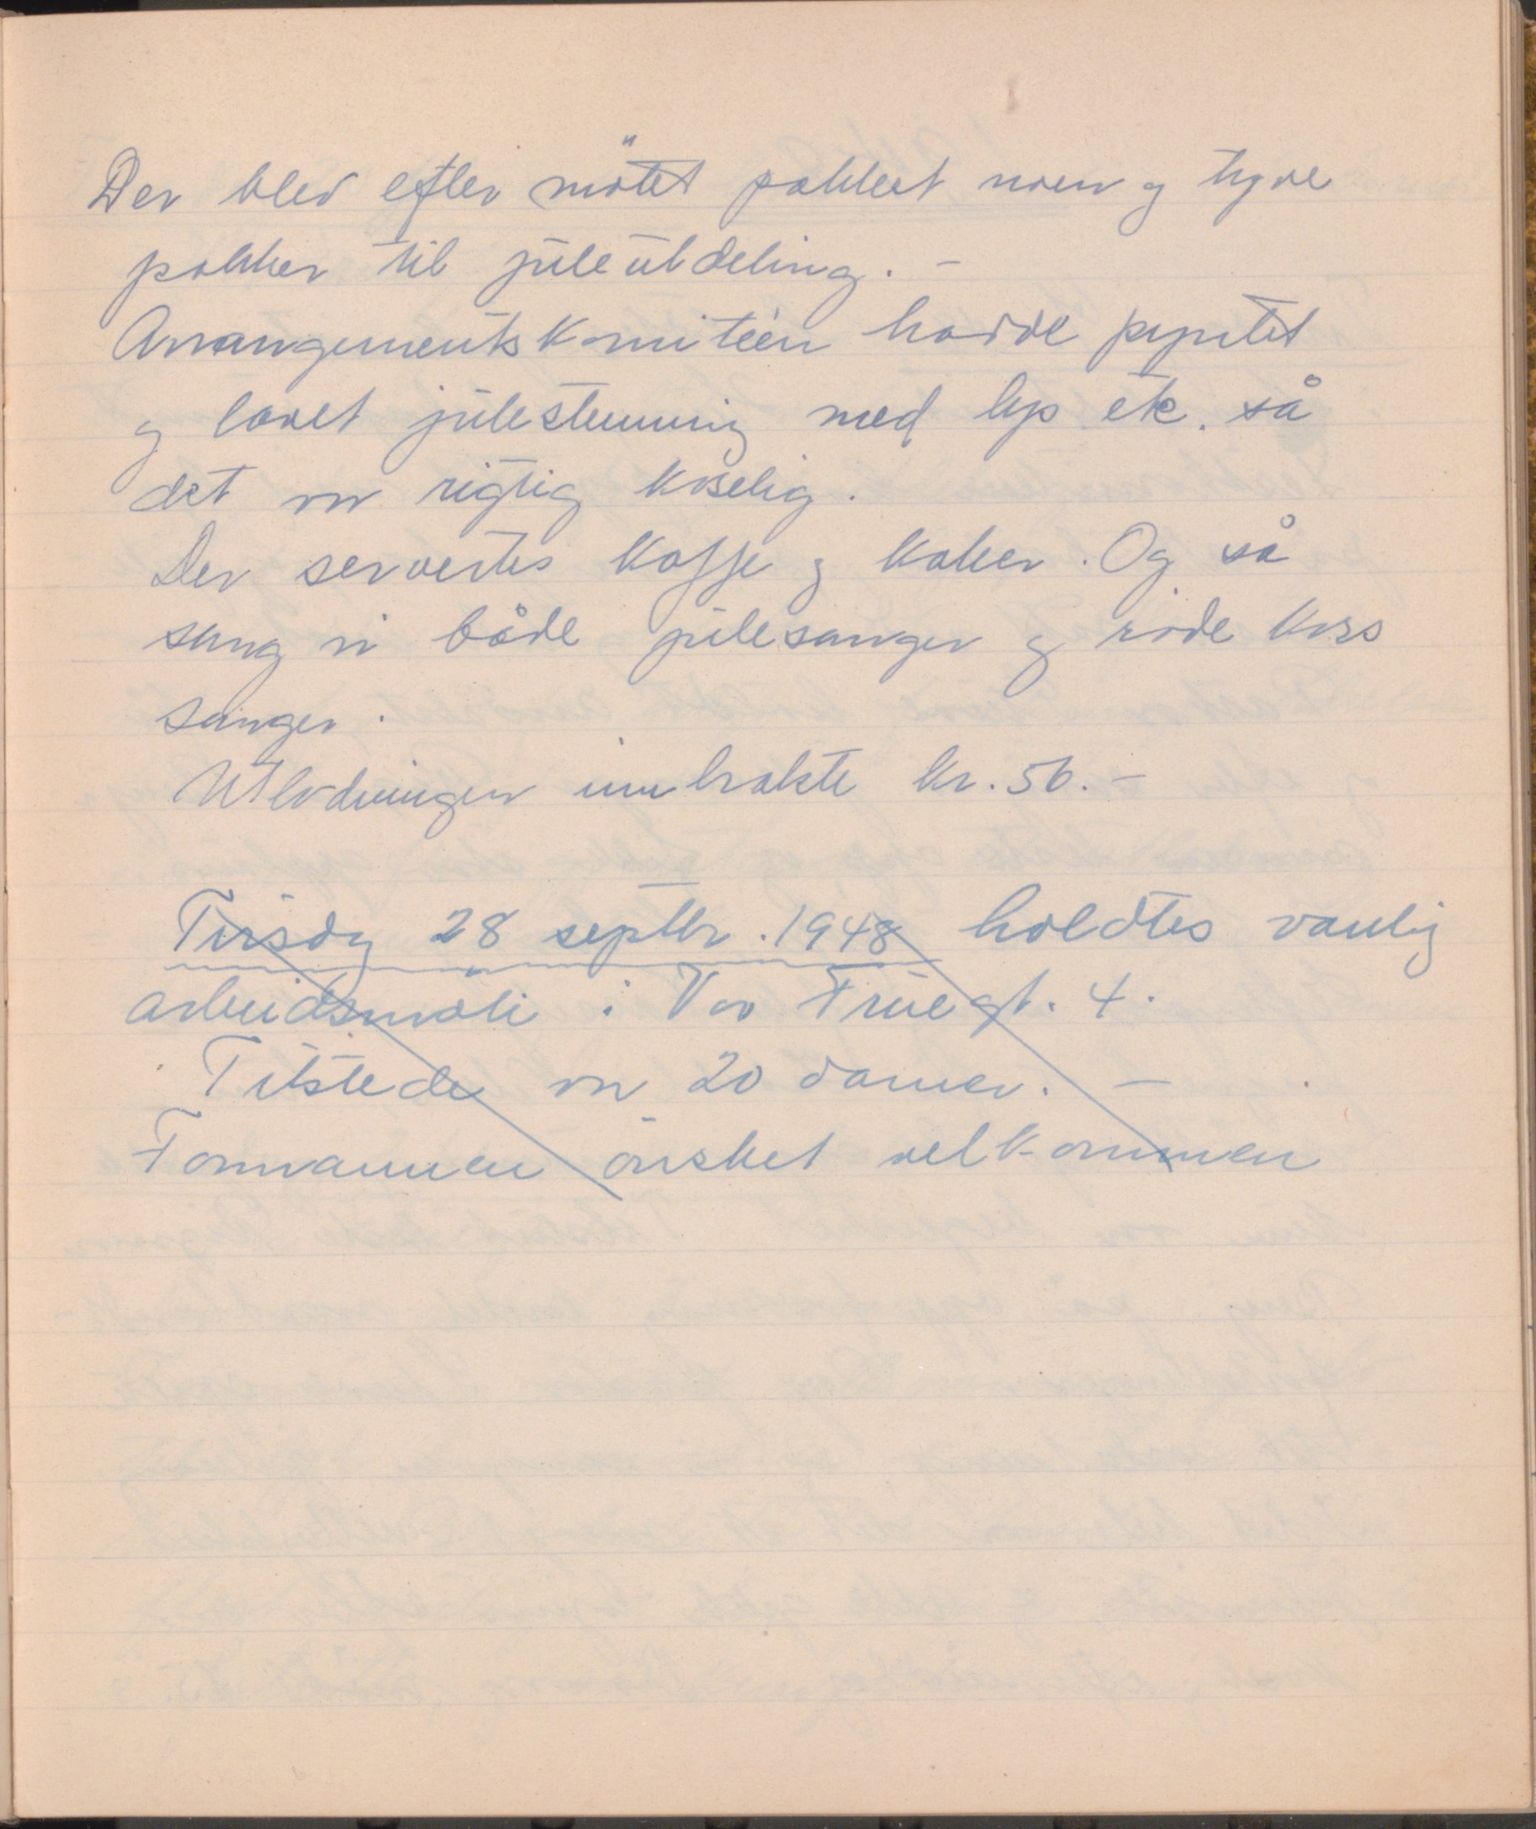 Der blev efter møtet pakket noen og tyve
pakker til juleutdeling. –
Arrangementskomitéen hadde pyntet
og lavet julestemning med lys etc. så
det var rigtig koselig.
Der servertes kaffe og kaker. Og så
sang vi både julesanger og røde kors
sanger.
Utlodningen innbrakte kr. 56.–
Tirsdag 28 septbr. 1948 holdtes vanlig
arbeidsmøte i Vor Frue gt. 4.
Tilstede var 20 damer. –
Formannen ønsket velkommen